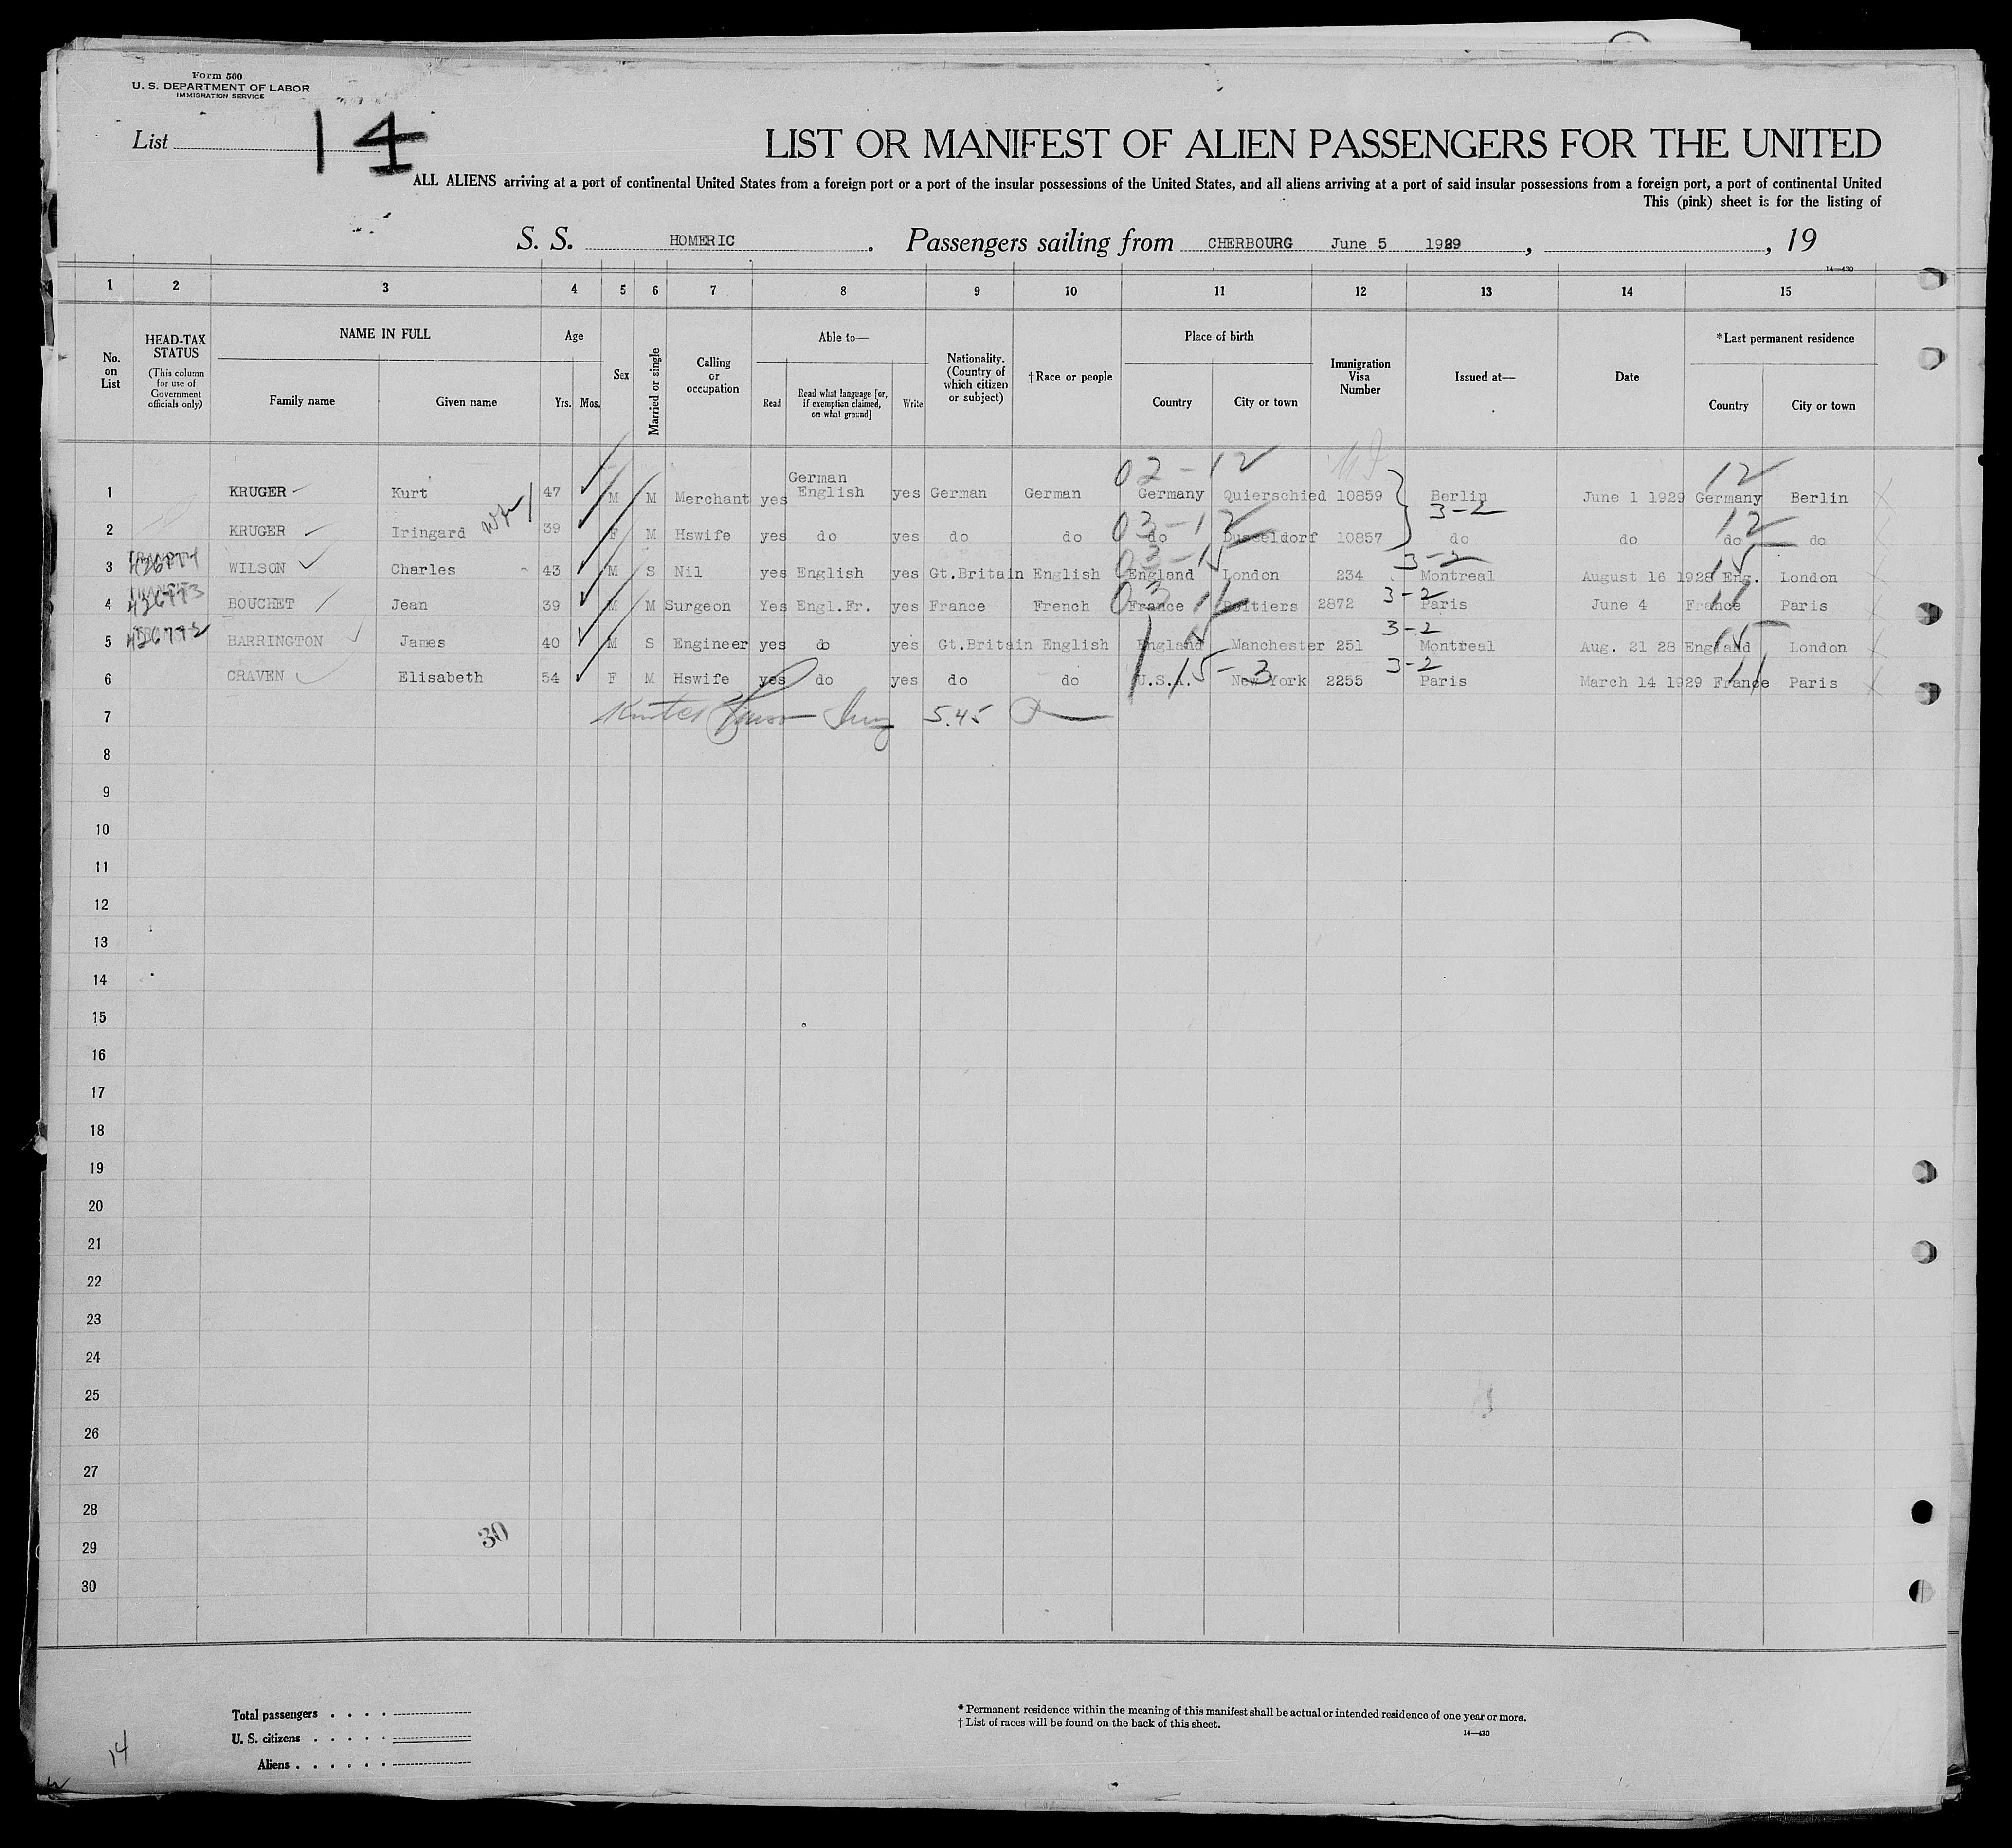 Form 500
U. S. DEPARTMENT OF LABOR
IMMIGRATION SERVICE
List 14
LIST OR MANIFEST OF ALIEN PASSENGERS FOR THE UNITED
ALL ALIENS arriving at a port of continental United States from a foreign port or a port of the insular possessions of the United States, and all aliens arriving at a port of said insular possessions from a foreign port, a port of continental United
This (pink) sheet is for the listing of
S. S. HOMERIC. Passengers sailing from CHERBOURG June 5 1929, , 19
14—430
1 2 3 4 5 6 7 8 9 10 11 12 13 14 15
No. on List
HEAD-TAX STATUS
(This column for use of Government officials only)
NAME IN FULL
Family name
Given name
Age
Yrs. Mos.
Sex
Married or single
Calling or occupation
Able to—
Read
Read what language [or, if exemption claimed, on what ground]
Write
Nationality. (Country of which citizen or subject)
†Race or people
Place of birth
Country
City or town
Immigration Visa Number
Issued at—
Date
*Last permanent residence
Country
City or town
02-12 12
1 KRUGER Kurt 47 M M Merchant yes German English yes German German Germany Quierschied 10859 Berlin June 1 1929 Germany Berlin
3-2
wife 03-12 12
2 KRUGER Iringard 39 F M Hswife yes do yes do do do Dusseldorf 10857 do do do do
426774 03-15 3-2 15
3 WILSON Charles 43 M S Nil yes English yes Gt.Britain English England London 234 Montreal August 16 1928 Eng. London
426773 03 11 3-2 11
4 BOUCHET Jean 39 M M Surgeon Yes Engl.Fr. yes France French France Poitiers 2872 Paris June 4 France Paris
426772 15 3-2 15
5 BARRINGTON James 40 M S Engineer yes do yes Gt.Britain English England Manchester 251 Montreal Aug. 21 28 England London
1 15-3 3-2 11
6 CRAVEN Elisabeth 54 F M Hswife yes do yes do do U.S.A. New York 2255 Paris March 14 1929 France Paris
7 5.45
8
9
10
11
12
13
14
15
16
17
18
19
20
21
22
23
24
25
26
27
28
29 30
30
Total passengers . . . .
U. S. citizens . . . . .
Aliens . . . . . .
14
* Permanent residence within the meaning of this manifest shall be actual or intended residence of one year or more.
† List of races will be found on the back of this sheet.
14—430